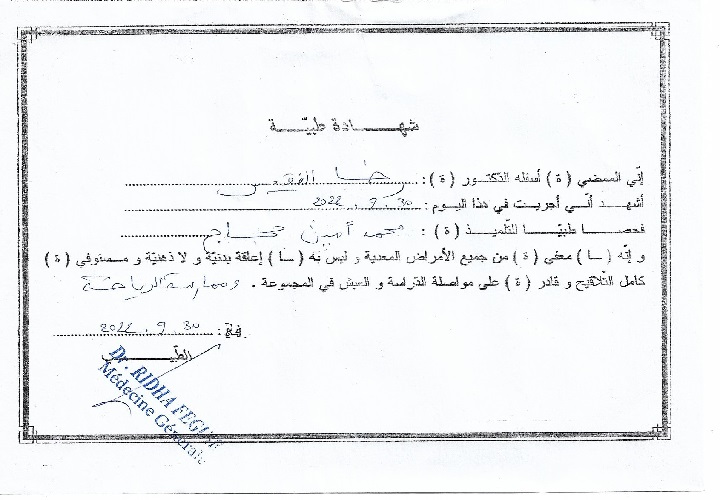 شهـــادة طبيّـــة
إنّي الممضي ( ة ) أسفله الدّكتـــور ( ة ) : رضا الفقيـ
أشهـد أنّـي أجريـت في هـذا اليـوم : 2022 . 9 . 30
فـحصـا طبّيّـا للتّلميـذ ( ة ) : محمد أمين حجاج
و إنّه ( ــا ) معفى ( ة ) من جميع الأمراض المعدية و ليس له ( ــا ) إعاقة بدنيّة و لا ذهنيّة و مستوفي ( ة )
كامل التّلاقيح و قادر ( ة ) على مواصلة الدّراسة و العيش في المجموعة . وممارسة الرياضة
في : 2022 . 9 . 30
الطّبيـــب
Dr. RIDHA
Médecine Générale